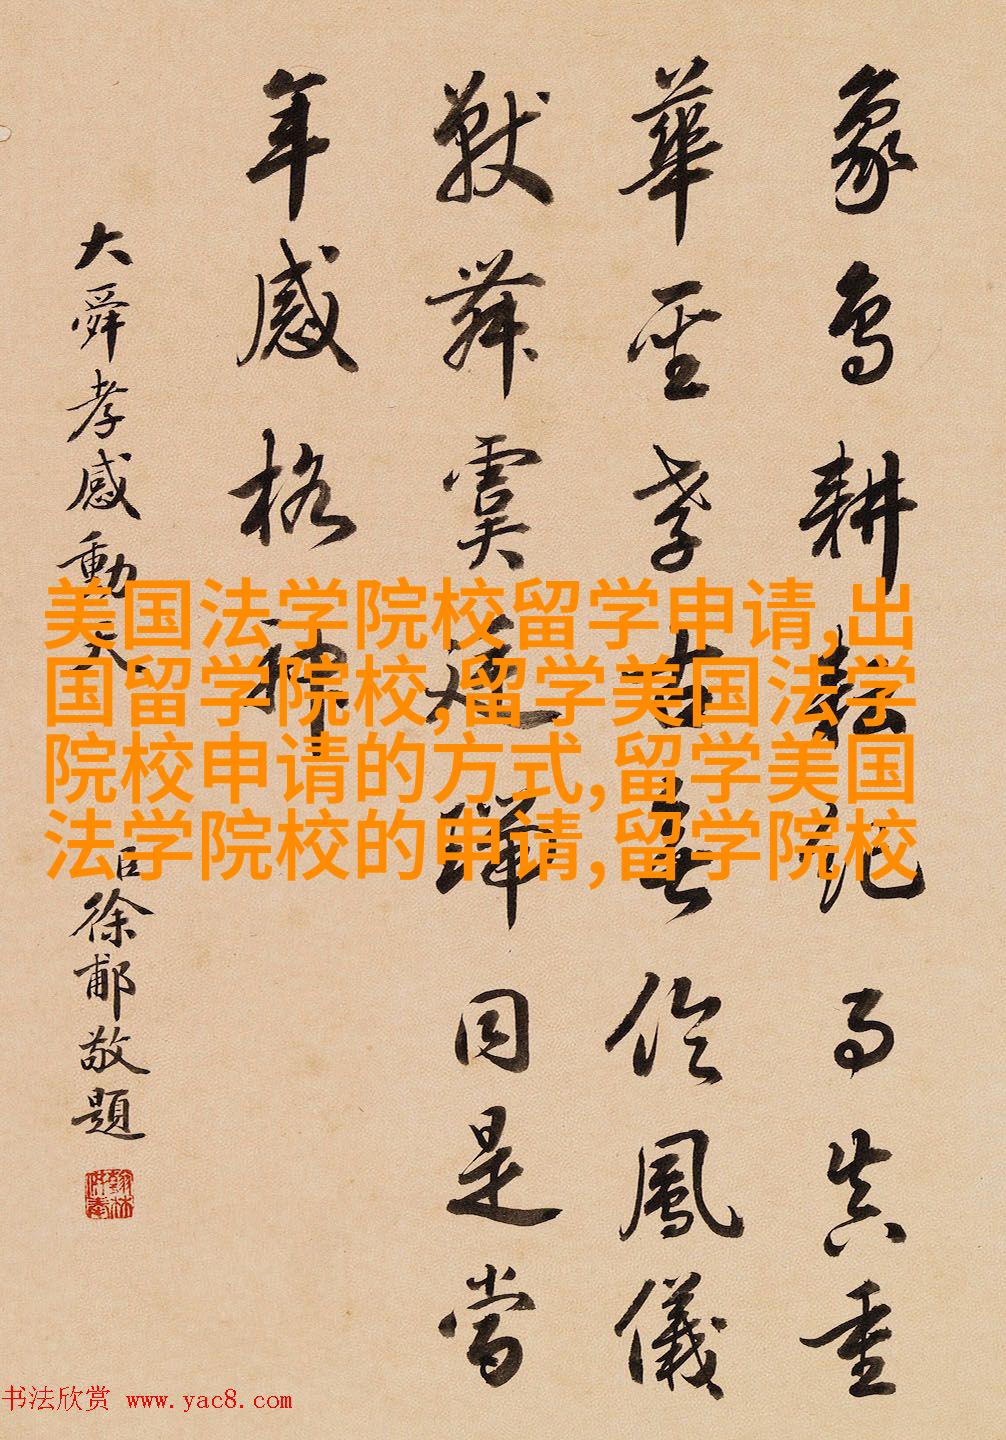 象鳥耕耘紀事真重
華至孝古無倫鳳儀
獸舞虞廷同是當
年感格神
大舜孝感動天
臣徐郙敬題
翰林供奉
美国法学院校留学申请,出
国留学院校,留学美国法学
院校申请的方式,留学美国
法学院校的申请,留学院校
书法欣赏 www.yac8.com